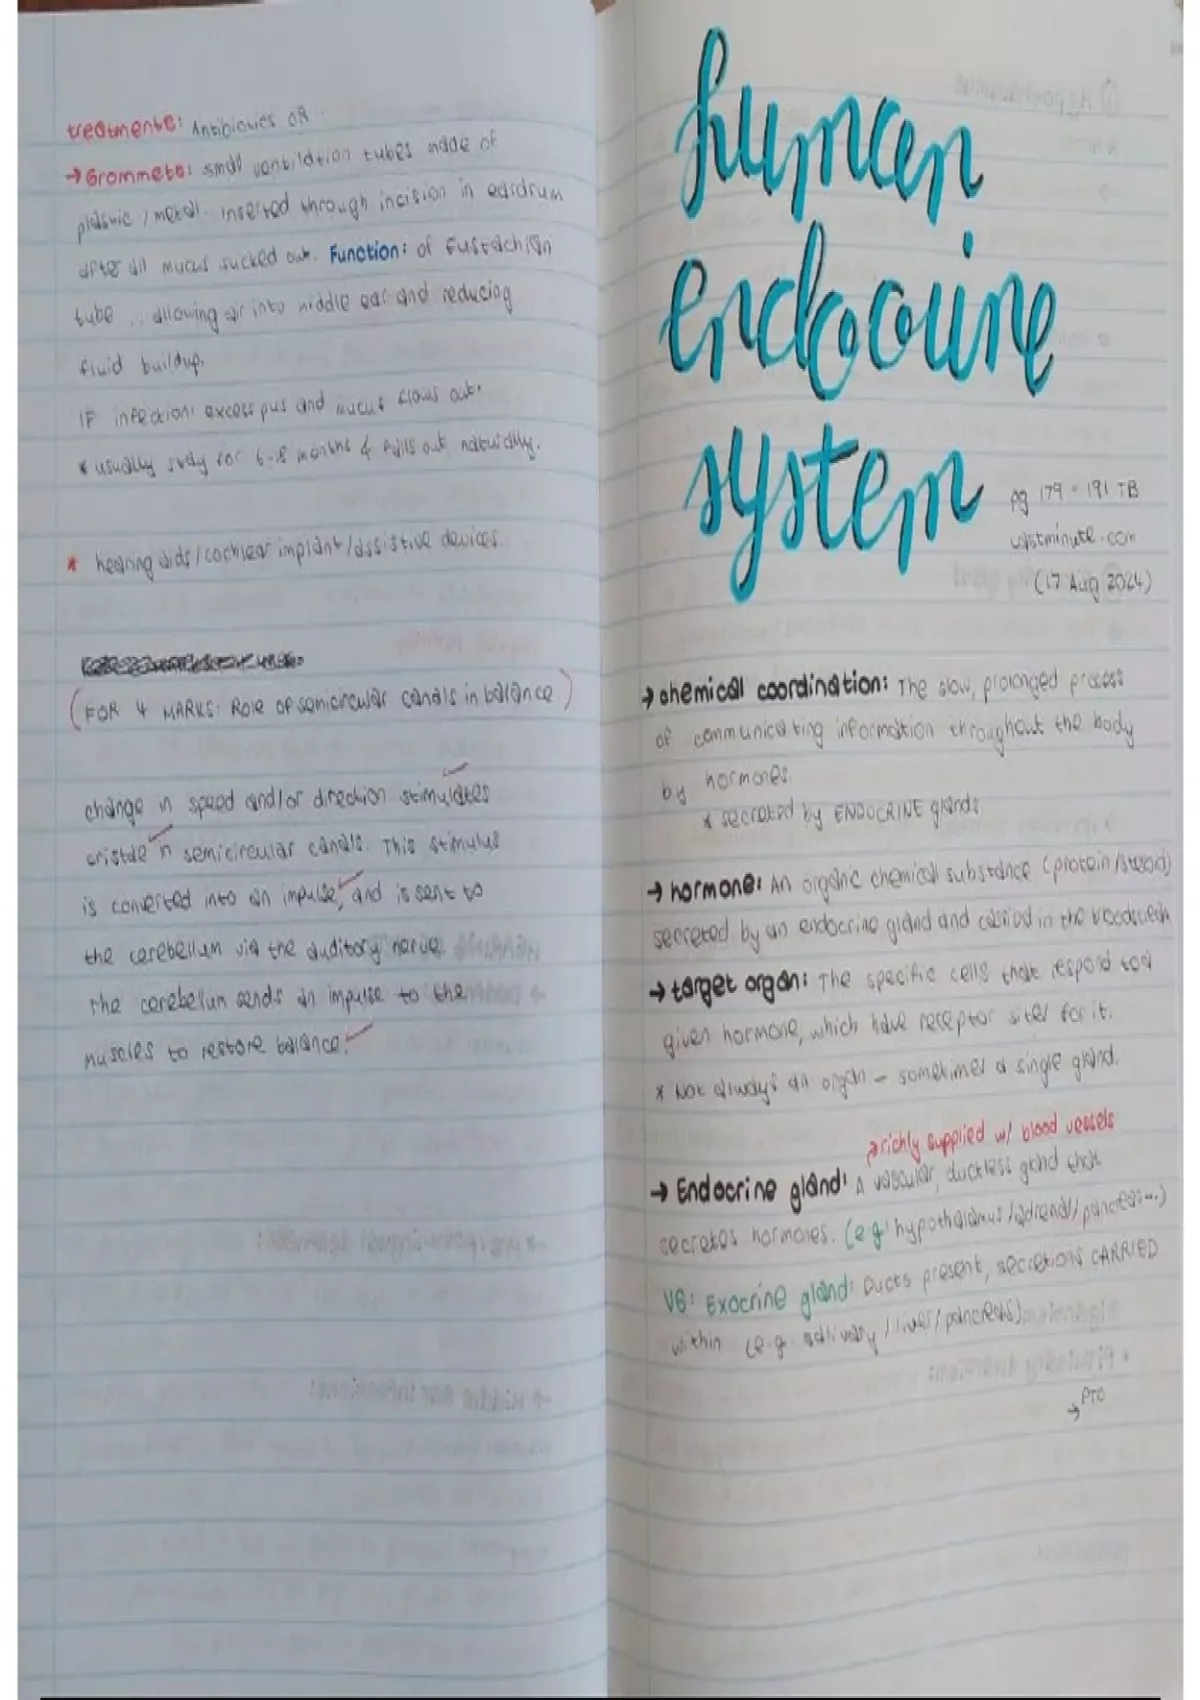 treatments: Antibiotics OR
→ Grommets: small ventilation tubes made of
plastic / metal. inserted through incision in eardrum
after all mucus sucked out. Function: of Eustachian
tube ∴ allowing air into middle ear and reducing
fluid buildup.
IF infection: excess pus and mucus flows out.
* usually stay for 6-18 months & falls out naturally.
* hearing aids / cochlear implant / assistive devices.
(FOR 4 MARKS: Role of semicircular canals in balance)
change in speed and/or direction stimulates
cristae in semicircular canals. This stimulus
is converted into an impulse, and is sent to
the cerebellum via the auditory nerve.
The cerebellum sends an impulse to the
muscles to restore balance.
human
endocrine
system
pg 179 - 191 TB
wastminute.com
(17 Aug 2024)
→ chemical coordination: The slow, prolonged process
of communicating information throughout the body
by hormones.
* secreted by ENDOCRINE glands
→ hormone: An organic chemical substance (protein/steroid)
secreted by an endocrine gland and carried in the bloodstream
→ target organ: The specific cells that respond to a
given hormone, which have receptor sites for it.
* Not always an organ - sometimes a single gland.
→ richly supplied w/ blood vessels
→ Endocrine gland: A vascular, ductless gland that
secretes hormones. (e.g: hypothalamus/adrenal/pancreas...)
VS: Exocrine gland: Ducts present, secretions CARRIED
within (e.g. salivary / liver / pancreas)
→ PTO